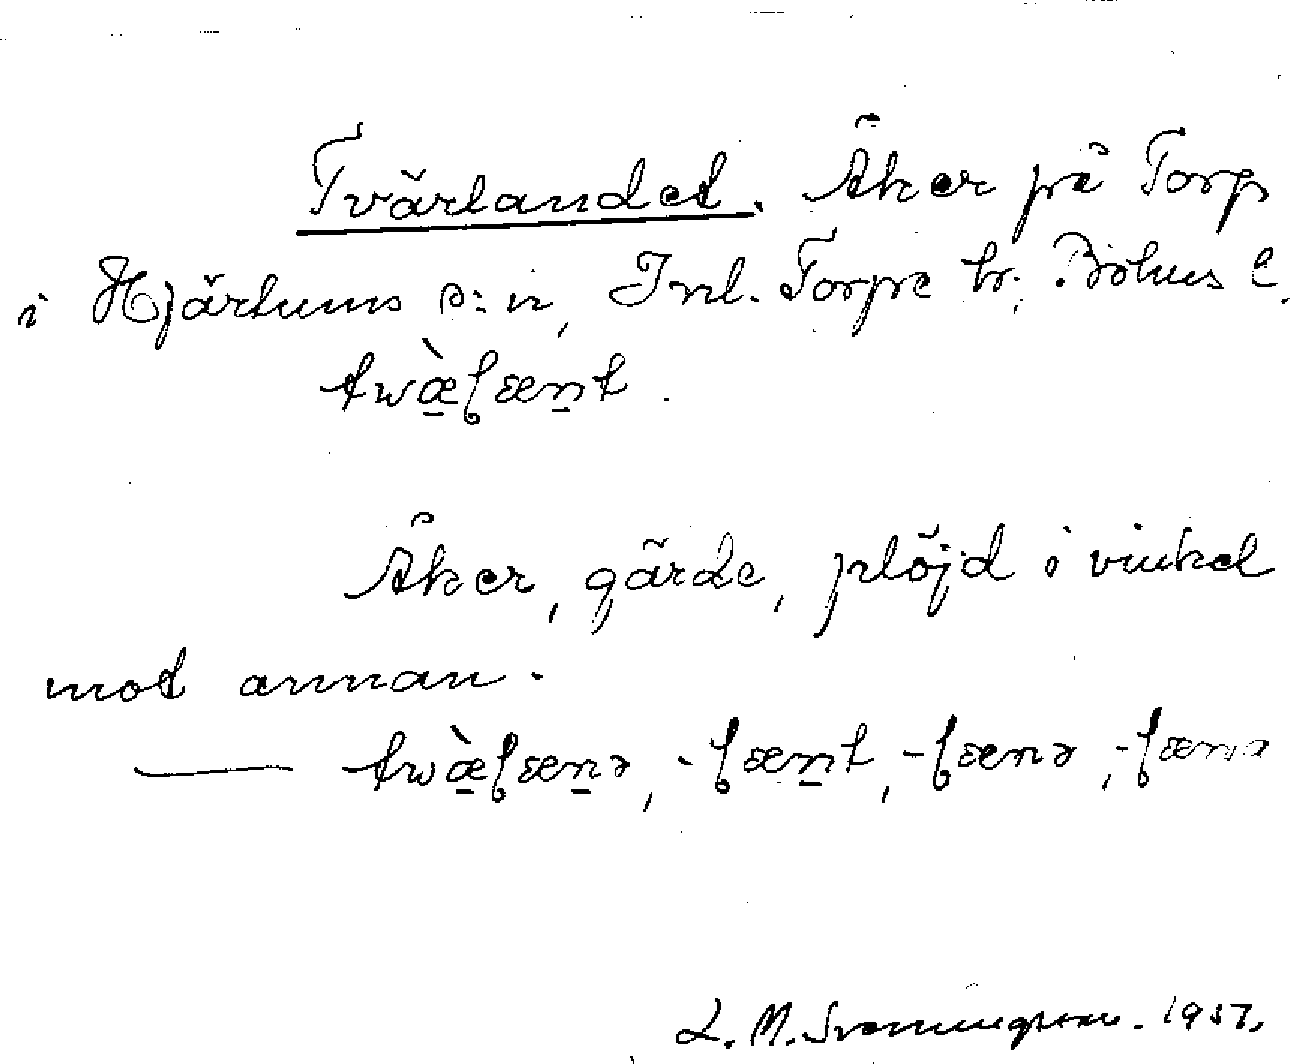 Tvärlandet. Åker på Torp
i Hjärtums s:n, Inl. Torpe hr, Bohus l.
twæ̀ɭæn̠t.
Åker, gärde, plöjd i vinkel
mot annan.
— twæ̀ɭæn̠ə, -ɭæn̠t, -ɭænə, -ɭæna
L. M. Svenningsson. 1937.